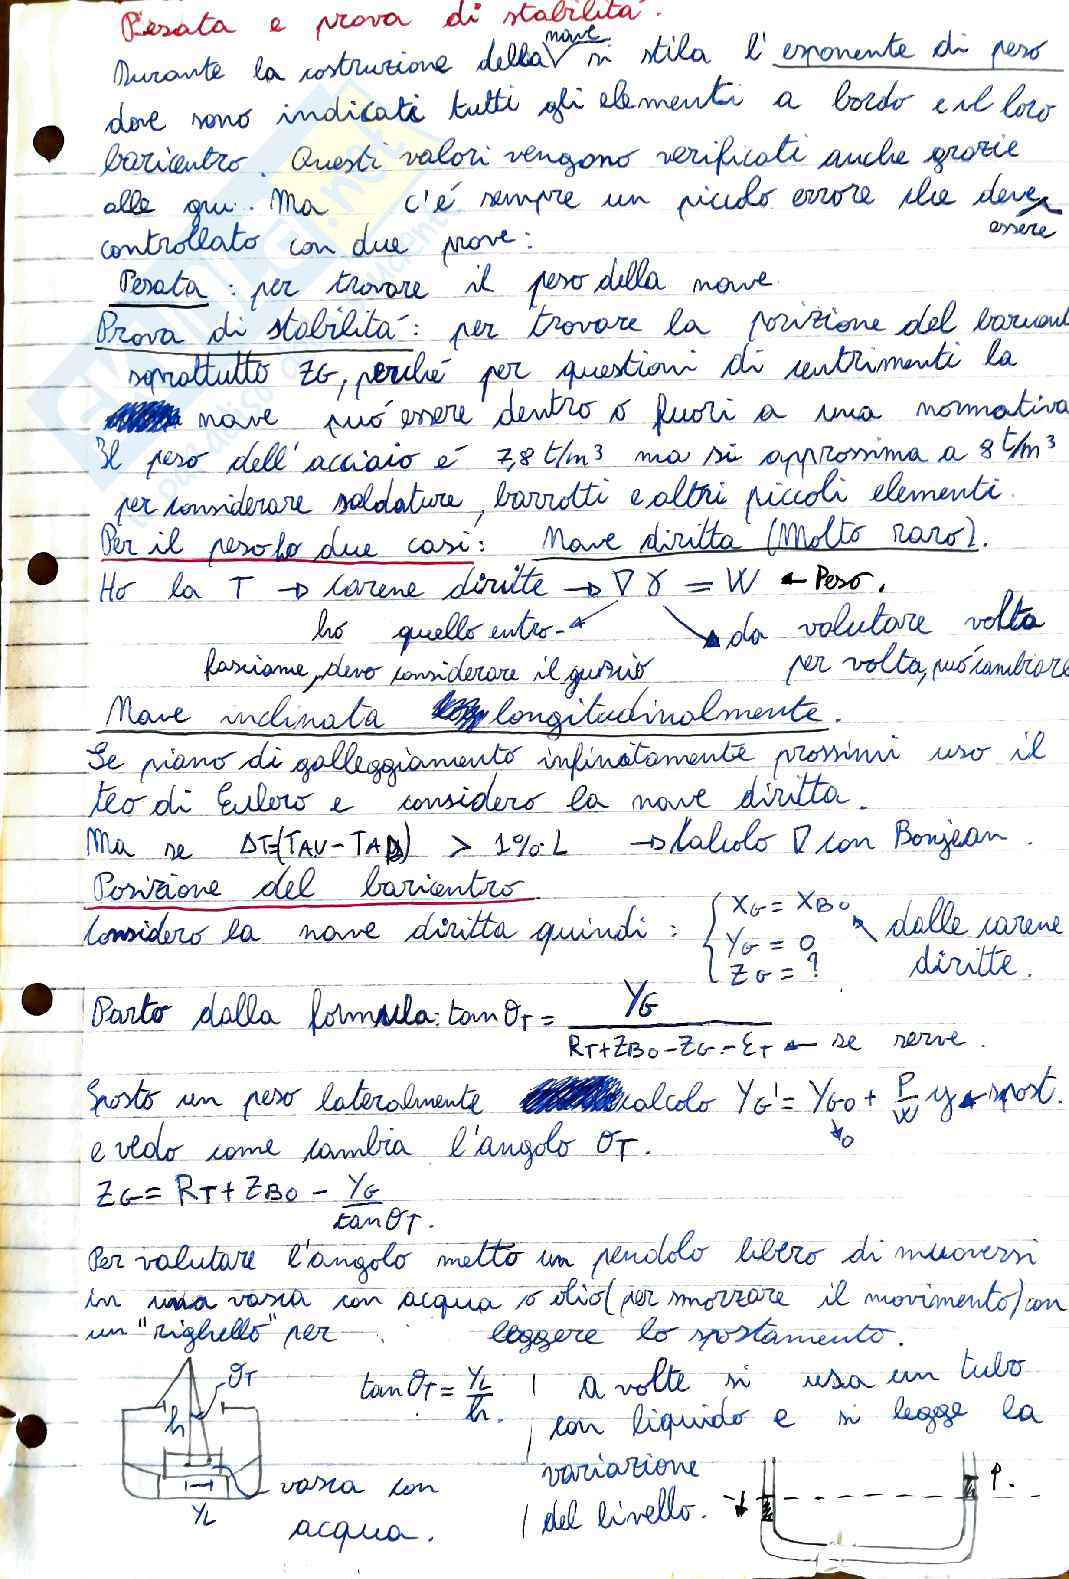 Pesata e prova di stabilità.
Durante la costruzione della nave si stila l'esponente di peso
dove sono indicati tutti gli elementi a bordo e il loro
baricentro. Questi valori vengono verificati anche grazie
alle gru. Ma c'é sempre un piccolo errore che deve essere
controllato con due prove:
Pesata: per trovare il peso della nave.
Prova di stabilitá: per trovare la posizione del baricent
soprattutto ZG, perché per questioni di centimetri la
nave puó essere dentro o fuori a una normativa
Il peso dell'acciaio é 7,8 t/m³ ma si approssima a 8 t/m³
per considerare saldature, barrotti e altri piccoli elementi.
Per il peso ho due casi: Nave diritta (Molto raro).
Ho la T → carene diritte → ∇ γ = W ← Peso.
ho quello entro- da valutare volta
fasciame, devo considerare il guscio per volta, può cambiare
Nave inclinata longitudinalmente.
Se piano di galleggiamento infinitamente prossimi uso il
teo di Eulero e considero la nave diritta.
Ma se ΔT=(TAV-TAD) > 1% L → Calcolo ∇ con Bonjean.
Posizione del baricentro
Considero la nave diritta quindi: { XG = XBO dalle carene
YG = 0 diritte.
ZG = ?
Parto dalla formula: tan θT = YG / (RT+ZBO-ZG-ƐT) ← se serve.
Sposto un peso lateralmente calcolo YG' = YGO + P/W y ← spost.
e vedo come cambia l'angolo θT. ↘0
ZG = RT+ZBO - YG / tan θT.
Per valutare l'angolo metto un pendolo libero di muoversi
in una vasca con acqua o olio (per smorzare il movimento) con
un "righello" per leggere lo spostamento.
θT
h
YL
vasca con
acqua.
tan θT = YL / h.
A volte si usa un tubo
con liquido e si legge la
variazione
del livello.
↑.